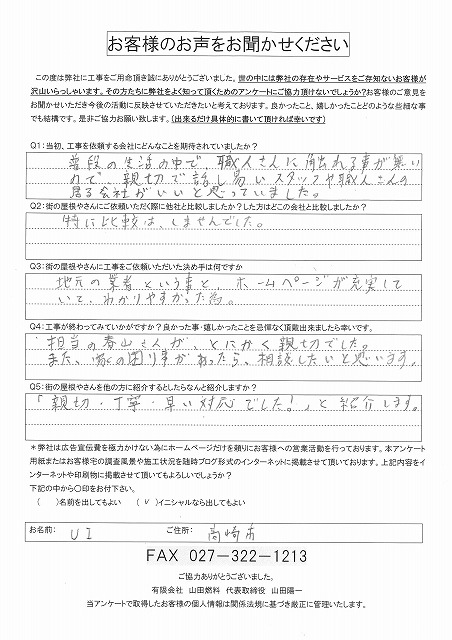 お客様のお声をお聞かせください
この度は弊社に工事をご用命頂き誠にありがとうございました。世の中には弊社の存在やサービスをご存知ないお客様が
沢山いらっしゃいます。その方たちに弊社をよく知って頂くためのアンケートにご協力頂けないでしょうか?お客様のご意見を
お聞かせいただき今後の活動に反映させていただきたいと考えております。良かったこと、嬉しかったことどのような些細な事
でも結構です。是非ご協力お願い致します。(出来るだけ具体的に書いて頂ければ幸いです)
Q1:当初、工事を依頼する会社にどんなことを期待されていましたか?
普段の生活の中で、職人さんに触れる事が無い
ので、親切で話し易いスタッフや職人さんの
居る会社がいいと思っていました。
Q2:街の屋根やさんにご依頼いただく際に他社と比較しましたか?した方はどこの会社と比較しましたか?
特に比較は、しませんでした。
Q3:街の屋根やさんに工事をご依頼いただいた決め手は何ですか
地元の業者という事と、ホームページが充実して
いて、わかりやすかった為。
Q4:工事が終わってみていかがですか?良かった事・嬉しかったことを忌憚なく頂戴出来ましたら幸いです。
担当の春山さんが、とにかく親切でした。
また、家の困り事があったら、相談したいと思います。
Q5:街の屋根やさんを他の方に紹介するとしたらなんと紹介しますか?
「親切・丁寧・早い対応でした!」と紹介します。
*弊社は広告宣伝費を極力かけない為にホームページだけを頼りにお客様への営業活動を行っております。本アンケート
用紙またはお客様宅の調査風景や施工状況を随時ブログ形式のインターネットに掲載させて頂いております。上記内容をイ
ンターネットや印刷物に掲載させて頂いてもよろしいでしょうか?
下記の中から〇印をお付け下さい。
( )名前を出してもよい (∨)イニシャルなら出してもよい
お名前: U I ご住所: 高崎市
FAX 027-322-1213
ご協力ありがとうございました。
有限会社 山田燃料 代表取締役 山田陽一
当アンケートで取得したお客様の個人情報は関係法規に基づき厳正に管理いたします。